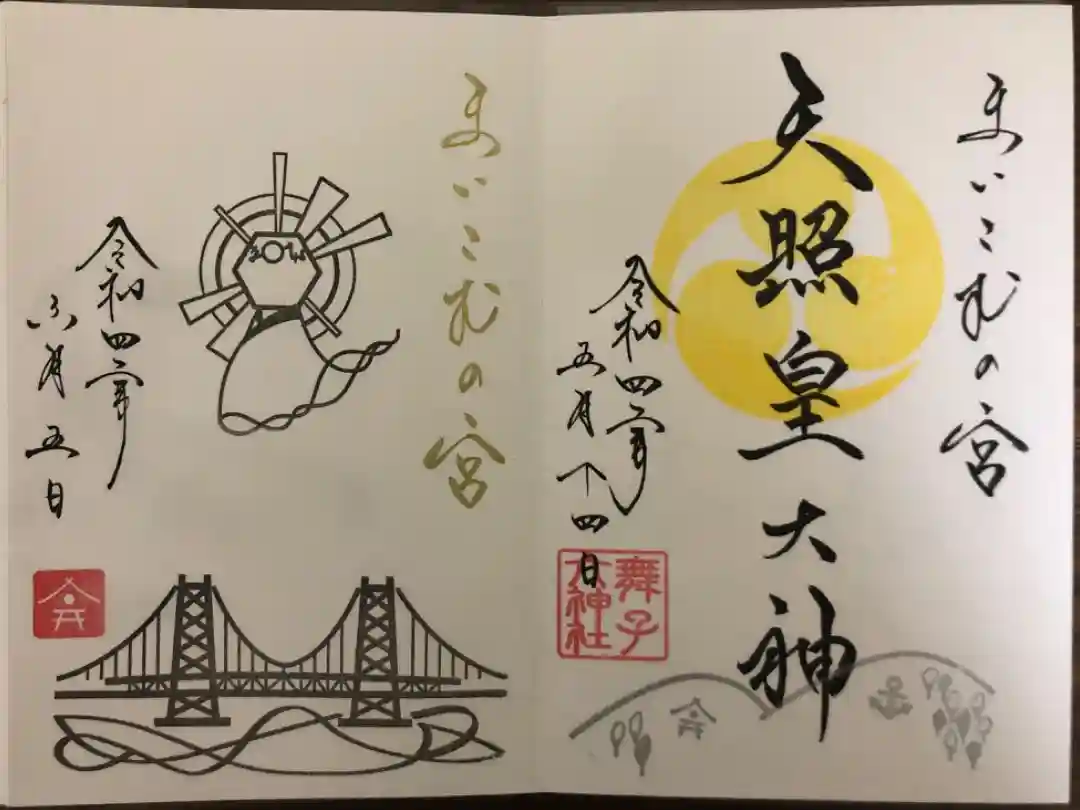 まいこむの宮
天照皇大神
令和四年
五月十四日
舞子
六神社
まいこむの宮
令和四年
六月五日